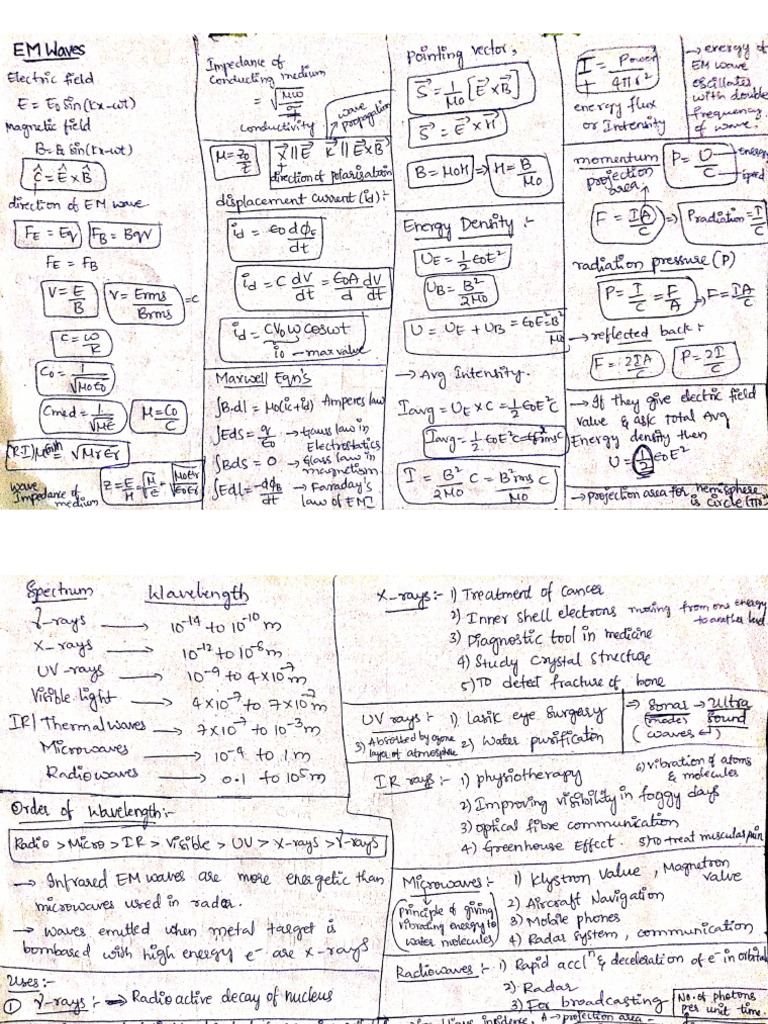 EM Waves
Electric field
E = E₀ Sin(kx-ωt)
Magnetic field
B = B₀ Sin(kx-ωt)
Ĉ = Ê × B̂
direction of EM wave
F_E = Eq
F_B = Bqv
F_E = F_B
V = E/B
V = Erms/Brms = C
C = ω/k
C₀ = 1/√μ₀ε₀
Cmed = 1/√με
μ = C₀/C
√μrεr
wave
Impedance of
medium
Z = E/H = √μ/ε = √μ₀μr/ε₀εr
Impedance of
conducting medium
= √μω/σ
conductivity
wave
propagation
μ = Z₀/Z
X⃗ ∥ E⃗
K⃗ ∥ E⃗×B⃗
direction of polarisation
displacement current (id):-
id = ε₀ dϕE/dt
id = C dV/dt = ε₀A/d dV/dt
id = CV₀ω cosωt
i₀ - max value
Maxwell Eqn's
∫B.dl = μ₀(ic+id) Amperes law
∫Eds = q/ε₀ → Gauss law in
Electrostatics
∫Bds = 0 → Gauss law in
magnetism
∫Edl = -dϕB/dt → Faraday's
law of EMI
Pointing vector,
S⃗ = 1/μ₀ [E⃗×B⃗]
S⃗ = E⃗×H⃗
B = μ₀H ⇒ H = B/μ₀
Energy Density :-
U_E = 1/2 ε₀E²
U_B = B²/2μ₀
U = U_E + U_B = ε₀E² = B²/μ₀
→ Avg Intensity.
Iavg = U_E × C = 1/2 ε₀E²C
Iavg = 1/2 ε₀E²C = ε₀E²rms C
I = B²/2μ₀ C = B²rms C/μ₀
I = Power/4πr²
energy flux
or Intensity
→ energy of
EM wave
oscillates
with double
frequency
of wave.
momentum
P = U/C
energy
speed
projection
area
F = IA/C ⇒ Pradiation = I/C
radiation pressure (P)
P = I/C = F/A ⇒ F = IA/C
→ reflected back :-
F = 2IA/C
P = 2I/C
→ If they give electric field
value & ask total Avg
Energy density then
U = 1/2 ε₀E²
→ projection area for hemisphere
is circle (πr²)
Spectrum Wavelength
γ-rays → 10⁻¹⁴ to 10⁻¹⁰ m
X-rays → 10⁻¹² to 10⁻⁸ m
UV-rays → 10⁻⁹ to 4×10⁻⁷ m
Visible light → 4×10⁻⁷ to 7×10⁻⁷ m
IR/Thermal waves → 7×10⁻⁷ to 10⁻³ m
Microwaves → 10⁻⁴ to 1 m
Radiowaves → 0.1 to 10⁵ m
Order of Wavelength:-
Radio > Micro > IR > Visible > UV > X-rays > γ-rays
→ Infrared EM waves are more energetic than
microwaves used in radar.
→ waves emitted when metal target is
bombased with high energy e⁻ are X-rays
Uses:-
① γ-rays :- → Radioactive decay of nucleus
X-rays:- 1) Treatment of cancer
2) Inner shell electrons moving from one energy
to another level
3) Diagnostic tool in medicine
4) Study crystal structure
5) To detect fracture of bone
UV rays:- 1) Lasik eye Surgery
3) Absorbed by ozone
layer of atmosphere
2) Water purification
→ Sonar → Ultra
sound
(waves)
IR rays:- 1) physiotherapy
6) vibration of atoms
& molecules
2) Improving visibility in foggy days
3) optical fibre communication
4) Greenhouse Effect. 5) To treat muscular pain
Microwaves:- 1) Klystron Value, Magnetron
valve
principle of giving
vibrating energy to
water molecules
2) Aircraft Navigation
3) Mobile phones
4) Radar system, communication
Radiowaves:- 1) Rapid acclⁿ & deceleration of e⁻ in orbital
2) Radar
3) For broadcasting
No. of photons
per unit time.
A → projection area -